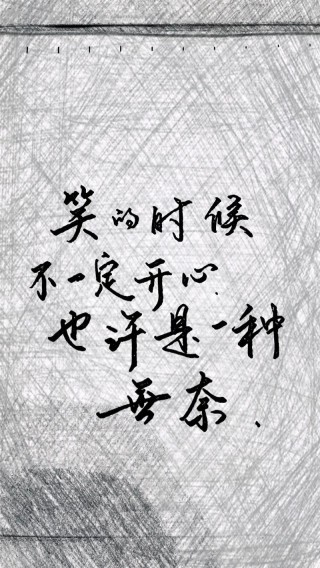 笑的时候
不一定开心.
也许是一种
無奈.